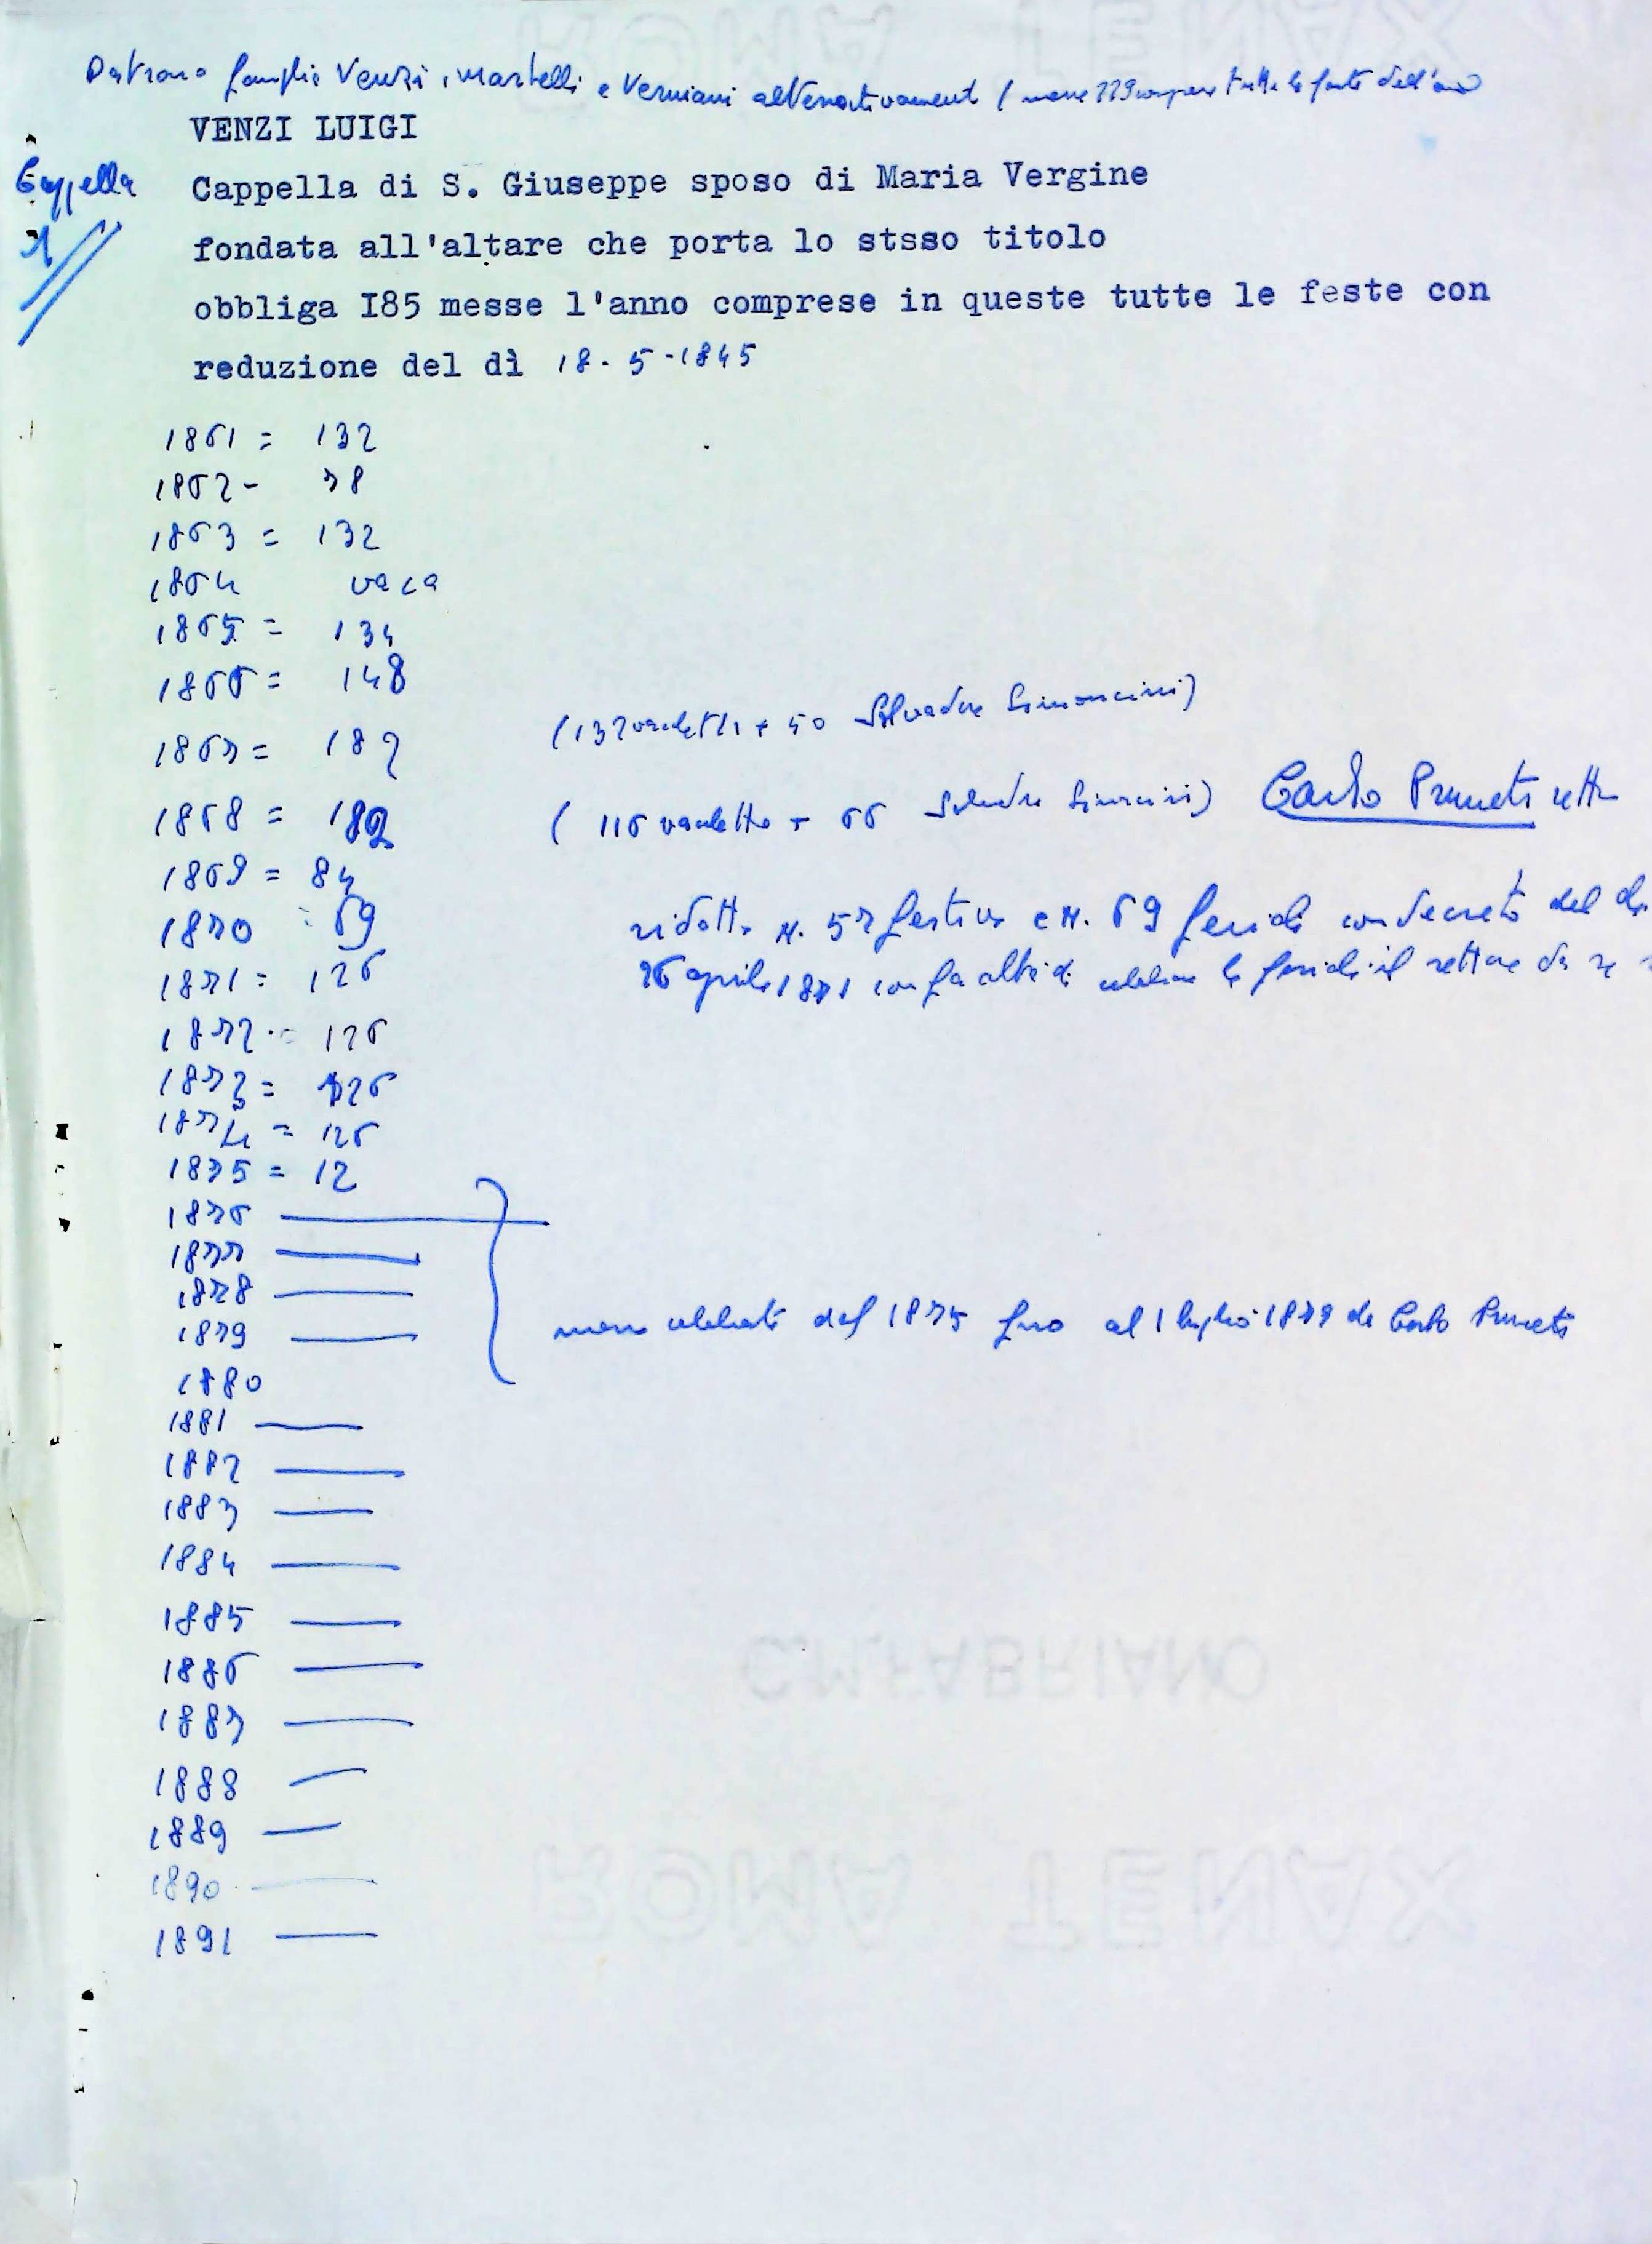 Patrono famiglie Venzi, Martelli e Verniani alternativament (messe 229 comprese tutte le feste dell'anno
VENZI LUIGI
Cappella
Cappella di S. Giuseppe sposo di Maria Vergine
1
fondata all'altare che porta lo stsso titolo
obbliga I85 messe l'anno comprese in queste tutte le feste con
reduzione del dì 18-5-1845
1861 = 132
1862 - 78
1863 = 132
1864 vaca
1865 = 134
1866 = 148
1867 = 182 (132 + 50 Salvadore Simoncini)
1868 = 182 (116 + 66 Salvadore Simoncini) Carlo Pruneti rettore
1869 = 84
1870 = 69 ridotte N. 57 festive e N. 69 feriali con decreto del dì
1871 = 126 26 aprile 1871 con facoltà di celebrare le feriali il rettore da se
1872 = 126
1873 = 126
1874 = 126
1875 = 12
1876
1877
1878
1879 messe celebrate dal 1875 fino al 1 luglio 1879 da Carlo Pruneti
1880
1881
1882
1883
1884
1885
1886
1887
1888
1889
1890
1891
C.M.FABRIANO
ROMA TENAX